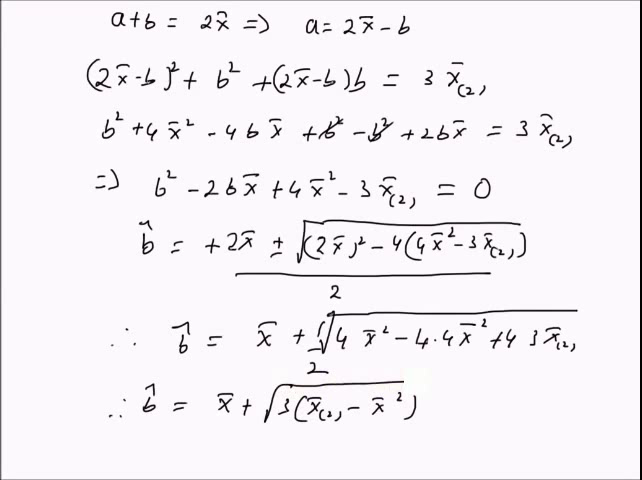 a+b = 2x̄ => a = 2x̄ - b
(2x̄-b)² + b² + (2x̄-b)b = 3 x̄₍₂₎
b² + 4x̄² - 4bx̄ + b² - b² + 2bx̄ = 3 x̄₍₂₎
=> b² - 2bx̄ + 4x̄² - 3x̄₍₂₎ = 0
b̂ = +2x̄ ± √((2x̄)² - 4(4x̄² - 3x̄₍₂₎)) / 2
∴ b̂ = x̄ + 1/2 √(4x̄² - 4·4x̄² + 4 3x̄₍₂₎)
∴ b̂ = x̄ + √(3(x̄₍₂₎ - x̄²))